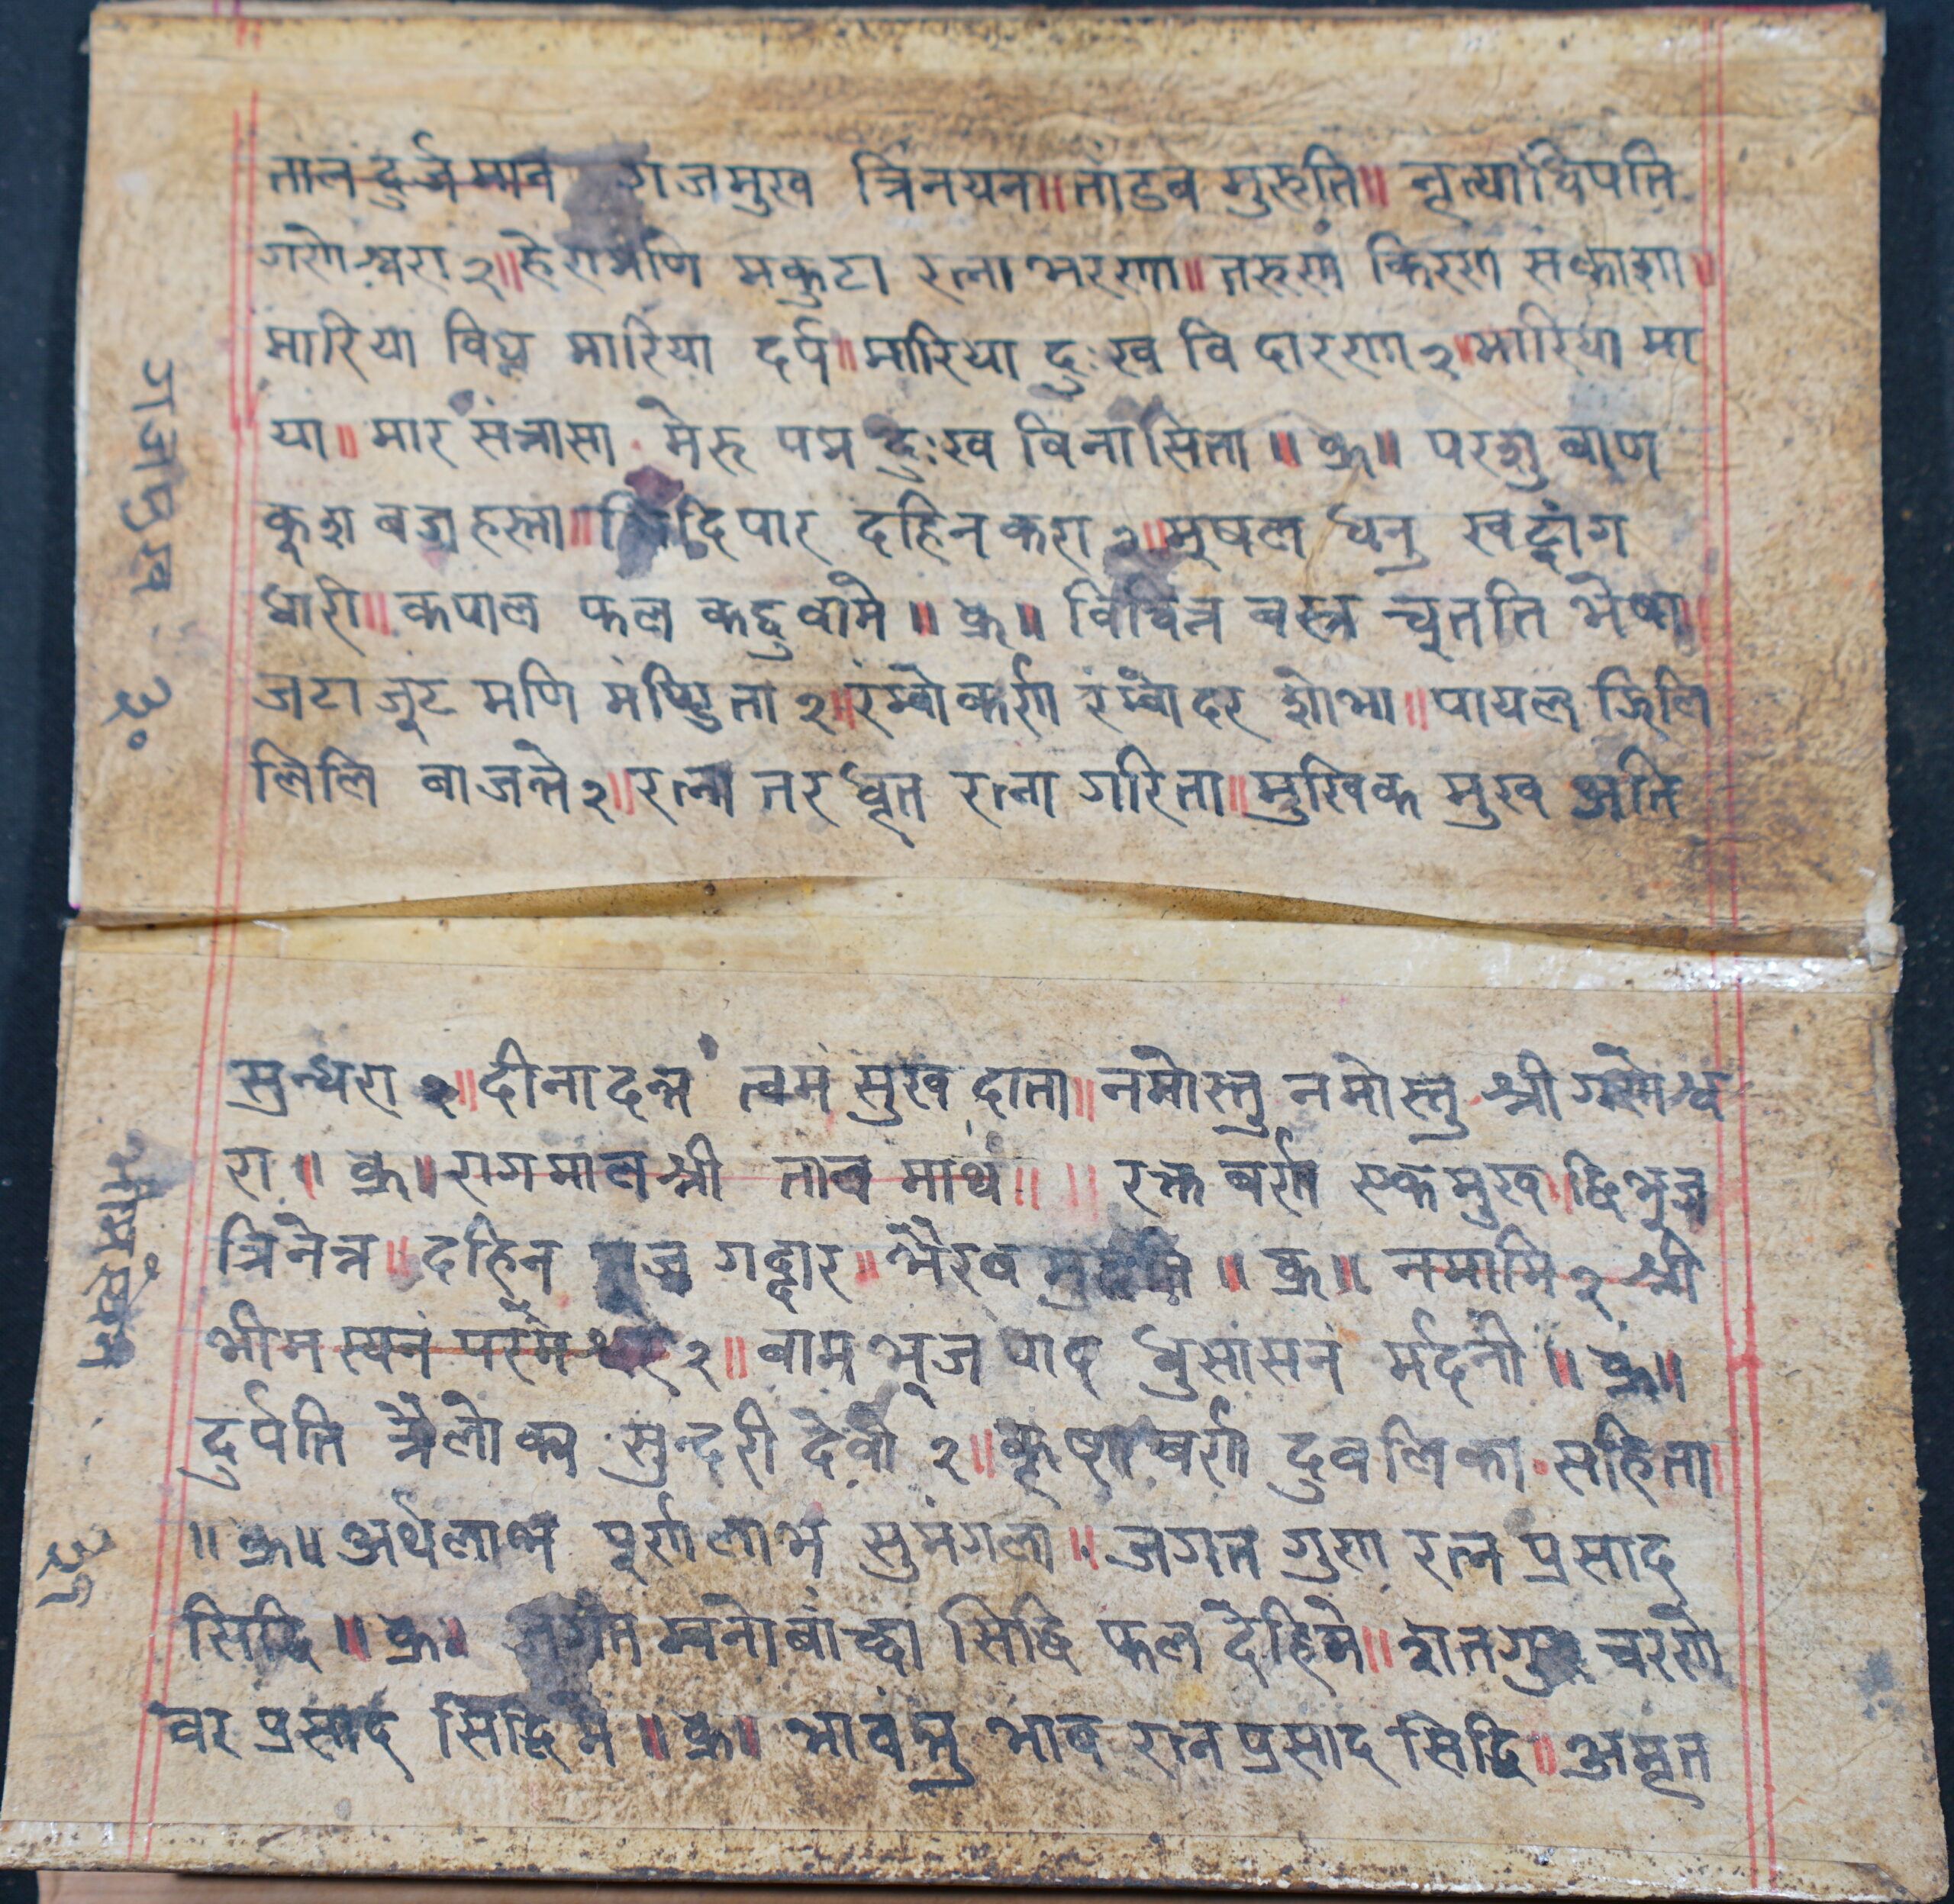 ताल दुर्जमान गजमुख त्रिनयन॥ तांडव मुरुति॥ नृत्याधिपति
गणेश्वरा २॥ हेरामणि मकुटा रत्ना भरणा॥ तरुण किरण संकाशा॥
मारिया विघ्न मारिया दर्प॥ मारिया दुःख विदारणा २॥ मारिया मा
या॥ मार संत्रासा मेरु पद्म दुःख विनासिता॥ क्रु॥ परशु बाण
कुश बज्र हस्ता॥ दिपार दहिन करा २॥ मुषल धनु खट्वांग
धारी॥ कपाल फल कद्दु वामे॥ क्रु॥ विचित्र वस्त्र चृतति भेषा॥
जटा जुट मणि मण्डिता २॥ रंम्बोकर्ण रंम्बोदर शोभा॥ पायल झिलि
लिलि बाजन्ते २॥ रत्न तर धृत रत्ना गरिता॥ मुखिक मुख अति
गजमुख
३०
सुन्धरा २॥ दीनादन्त त्वमं सुख दाता॥ नमोस्तु नमोस्तु श्री गणेश्व
रा॥ क्रु॥ रागमालश्री ताल माथं॥ ॥ रक्त बर्ण एकमुख॥ द्विभुज
त्रिनेत्र॥ दहिन गद्दार॥ भैरव॥ क्रु॥ नमामि २ श्री
भीमस्यनं २॥ वाम भुज पाद धुसांसनं मर्दनी॥ क्रु॥
दुर्पति त्रैलोक्य सुन्दरी देवी २॥ कृष्ण बर्ण दुवलिका सहिता॥
॥ क्रु॥ अर्थलाभ पूर्णलाभ सुमंगला॥ जगत गुण रत्न प्रसाद
सिद्धि॥ क्रु॥ मनोबांच्छा सिद्धि फल देहिमे॥ शतगुरु चरणे
वर प्रसाद सिद्धि मे॥ क्रु॥ भावंभु भाव रत्न प्रसाद सिद्धि॥ अमृत
३१